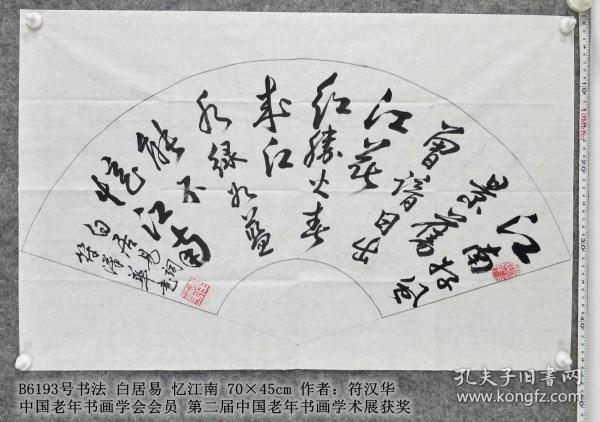 江南好風
景舊
曾諳日出
江花
紅勝火春
来江
水緑如藍
能不
憶江南
白居易词
符漢華書
B6193号书法 白居易 忆江南 70×45cm 作者：符汉华
中国老年书画学会会员 第二届中国老年书画学术展获奖
孔夫子旧书网
www.kongfz.com